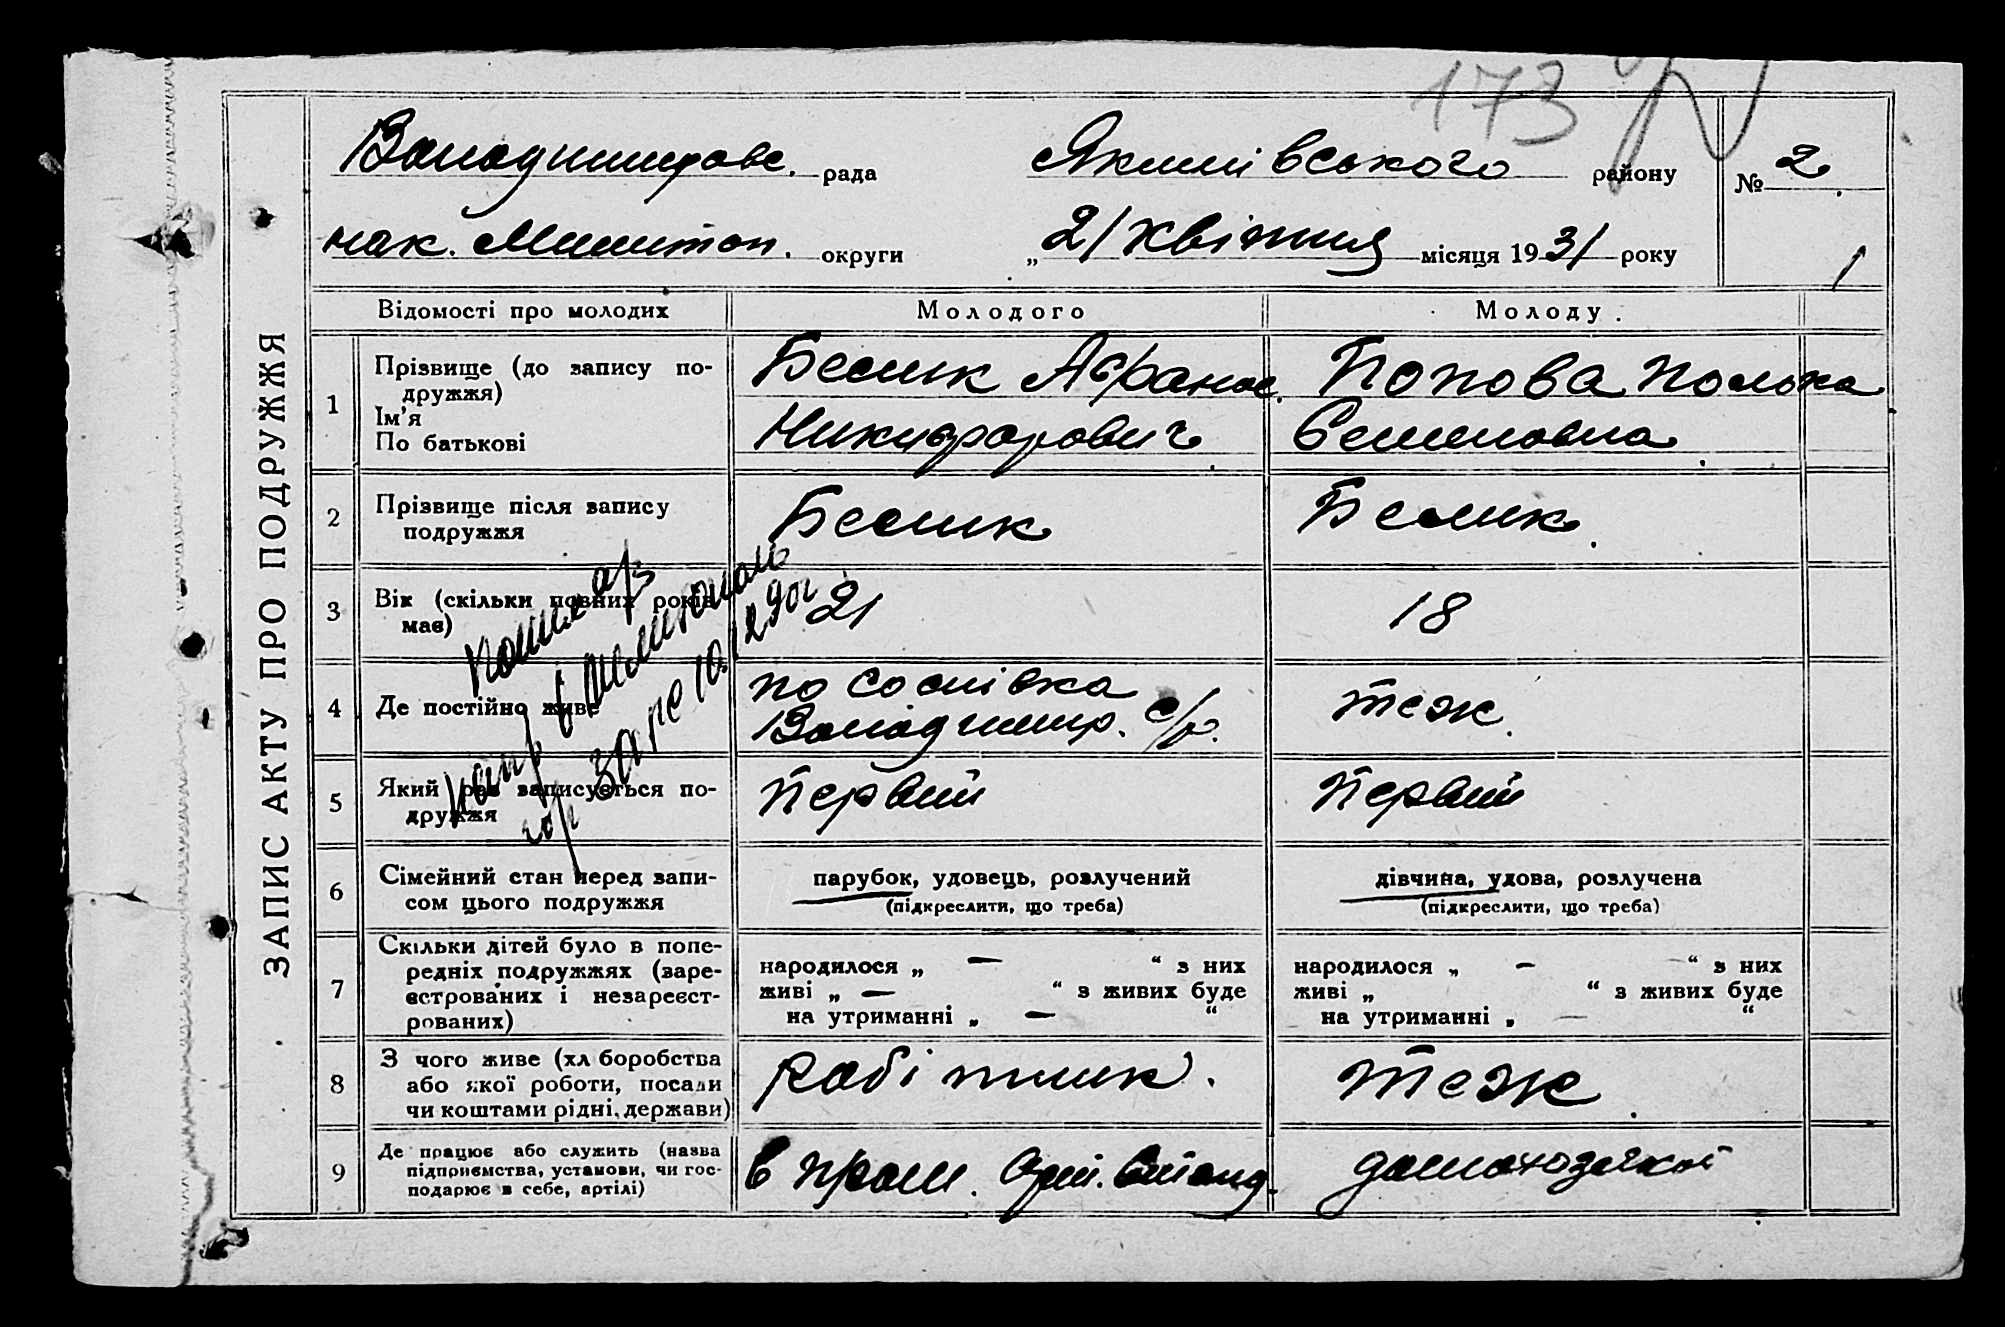 173
ЗАПИС АКТУ ПРО ПОДРУЖЖЯ
Володимировс. рада Якимівського району № 2
нак. Мелитоп. округи „21 квітня місяця 1931 року
Відомості про молодих Молодого Молоду
1 Прізвище (до запису по-
дружжя)
Ім'я
По батькові
Белик Афанас. Попова Полька
Никифорович Семеновна
2 Прізвище після запису
подружжя
Белик Белик
3 Вік (скільки повних років
має)
21 18
4 Де постійно живе
по Соснівка
Володимир. с/р. теж
5 Який раз записується по-
дружжя
Первий Первий
6 Сімейний стан перед запи-
сом цього подружжя
парубок, удовець, розлучений
(підкреслити, що треба)
дівчина, удова, розлучена
(підкреслити, що треба)
7 Скільки дітей було в попе-
редніх подружжях (заре-
єстрованих і незареєст-
рованих)
народилося „ — “ з них
живі „ — “ з живих буде
на утриманні „ — “
народилося „ — “ з них
живі „ “ з живих буде
на утриманні „ — “
8 З чого живе (хлiборобства
або якої роботи, посади
чи коштами рідні, держави)
робітник. теж
9 Де працює або служить (назва
підприємства, установи, чи гос-
подарює в себе, артілі)
в пром.